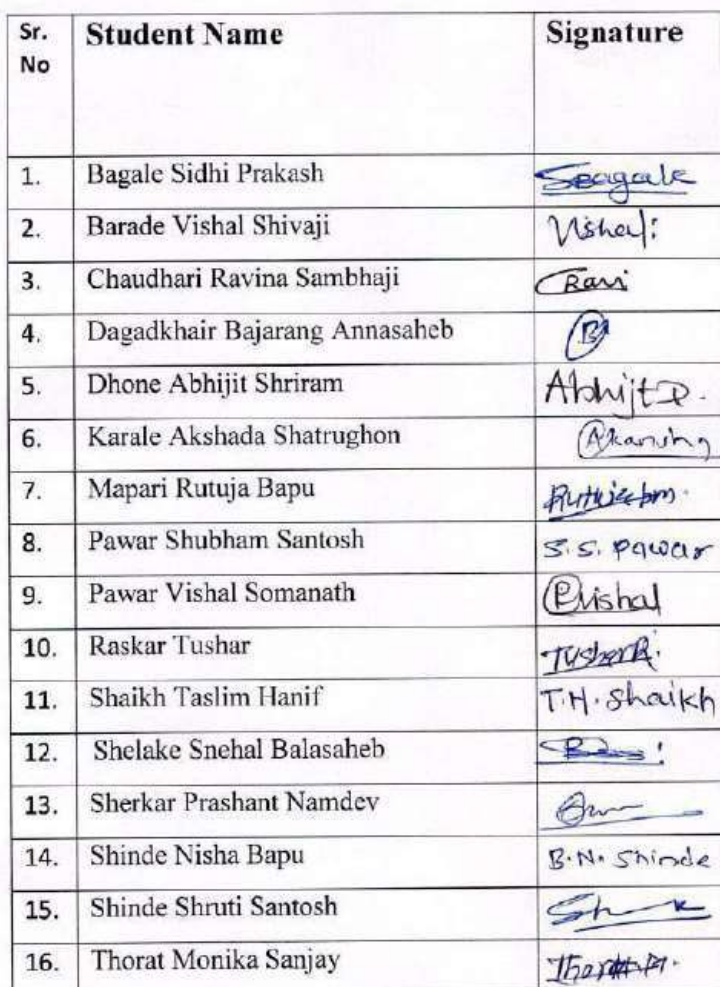 Sr. No Student Name Signature
1. Bagale Sidhi Prakash Sbagale
2. Barade Vishal Shivaji Vishal
3. Chaudhari Ravina Sambhaji Ravi
4. Dagadkhair Bajarang Annasaheb B
5. Dhone Abhijit Shriram Abhijit D.
6. Karale Akshada Shatrughon
7. Mapari Rutuja Bapu
8. Pawar Shubham Santosh S.S. Pawar
9. Pawar Vishal Somanath PVishal
10. Raskar Tushar TusharR.
11. Shaikh Taslim Hanif T.H. Shaikh
12. Shelake Snehal Balasaheb
13. Sherkar Prashant Namdev
14. Shinde Nisha Bapu B.N. Shinde
15. Shinde Shruti Santosh
16. Thorat Monika Sanjay